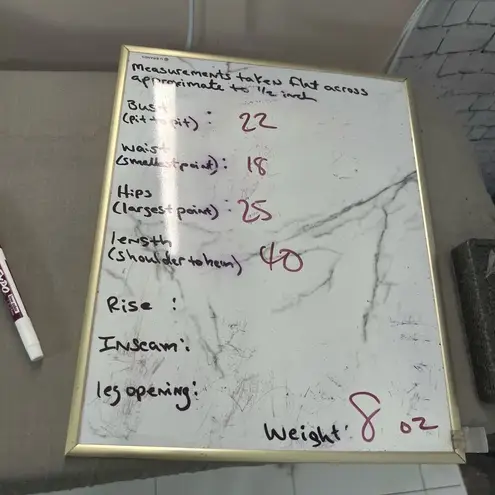 measurements taken flat across
approximate to 1/2 inch
Bust
(pit to pit) : 22
waist
(smallest point) : 18
Hips
(largest point) : 25
length
(shoulder to hem) 40
Rise :
Inseam :
leg opening :
Weight : 8 oz